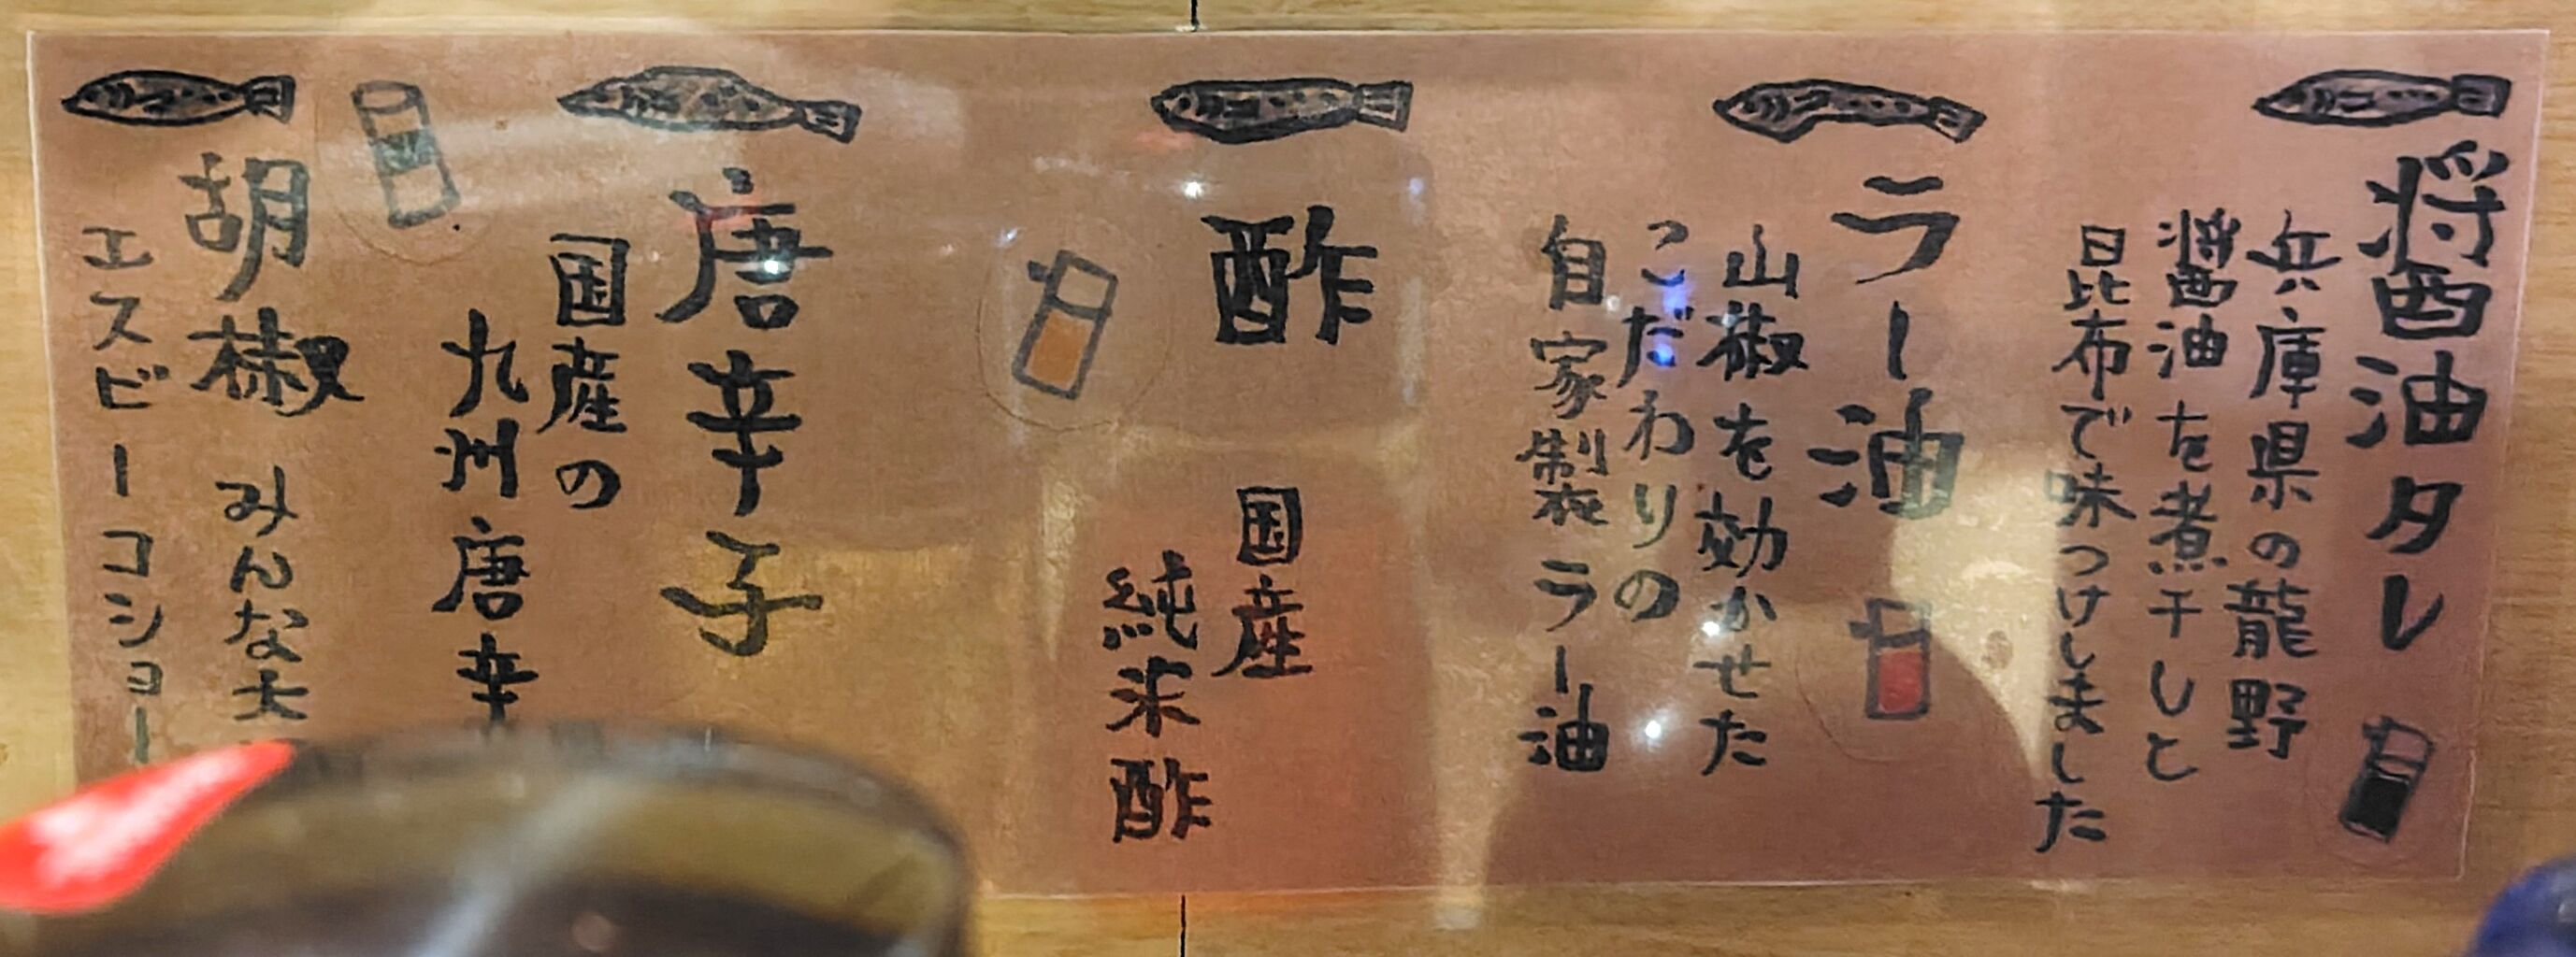 醤油タレ
兵庫県の龍野
醤油を煮干しと
昆布で味つけしました
ラー油
山椒を効かせた
こだわりの
自家製ラー油
酢
国産
純米酢
唐辛子
国産の
九州唐辛
胡椒
みんな大
エスビーコショー